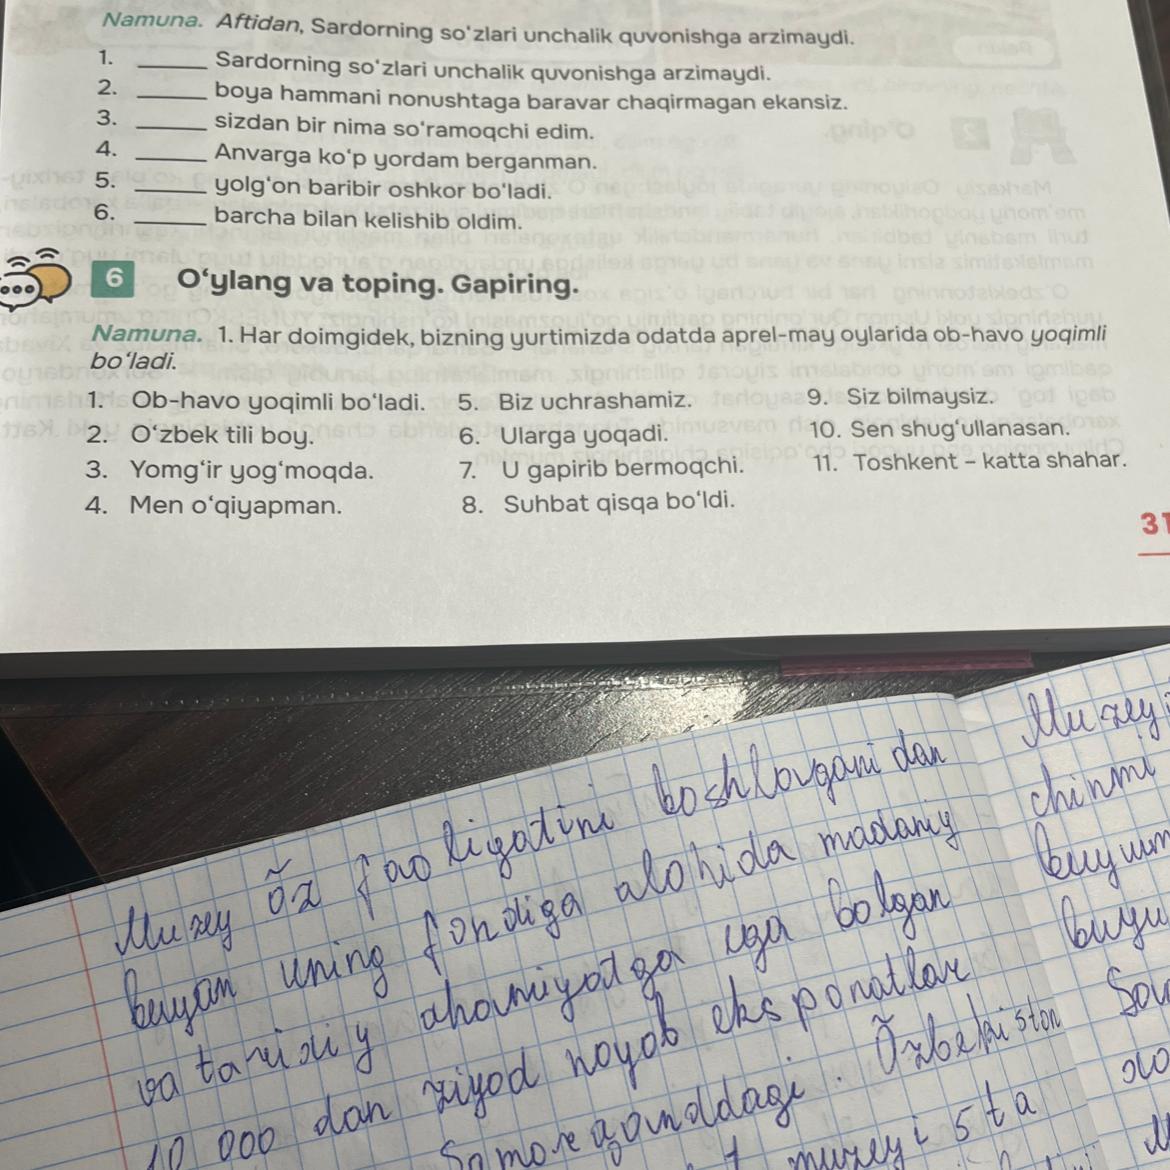 Namuna. Aftidan, Sardorning so‘zlari unchalik quvonishga arzimaydi.
1. ______ Sardorning so‘zlari unchalik quvonishga arzimaydi.
2. ______ boya hammani nonushtaga baravar chaqirmagan ekansiz.
3. ______ sizdan bir nima so‘ramoqchi edim.
4. ______ Anvarga ko‘p yordam berganman.
5. ______ yolg‘on baribir oshkor bo‘ladi.
6. ______ barcha bilan kelishib oldim.
6 O‘ylang va toping. Gapiring.
Namuna. 1. Har doimgidek, bizning yurtimizda odatda aprel-may oylarida ob-havo yoqimli
bo‘ladi.
1. Ob-havo yoqimli bo‘ladi.
2. O‘zbek tili boy.
3. Yomg‘ir yog‘moqda.
4. Men o‘qiyapman.
5. Biz uchrashamiz.
6. Ularga yoqadi.
7. U gapirib bermoqchi.
8. Suhbat qisqa bo‘ldi.
9. Siz bilmaysiz.
10. Sen shug‘ullanasan.
11. Toshkent – katta shahar.
31
Muzey õz faoliyatini boshlagani dan
buyan uning fondiga alohida madaniy
va tarixiy ahamiyatga ega bolgan
10 000 dan ziyod noyob eksponatlar
Samarqanddagi. Õzbekiston
muzeyi 5 ta
Muzey
chinmi
buyum